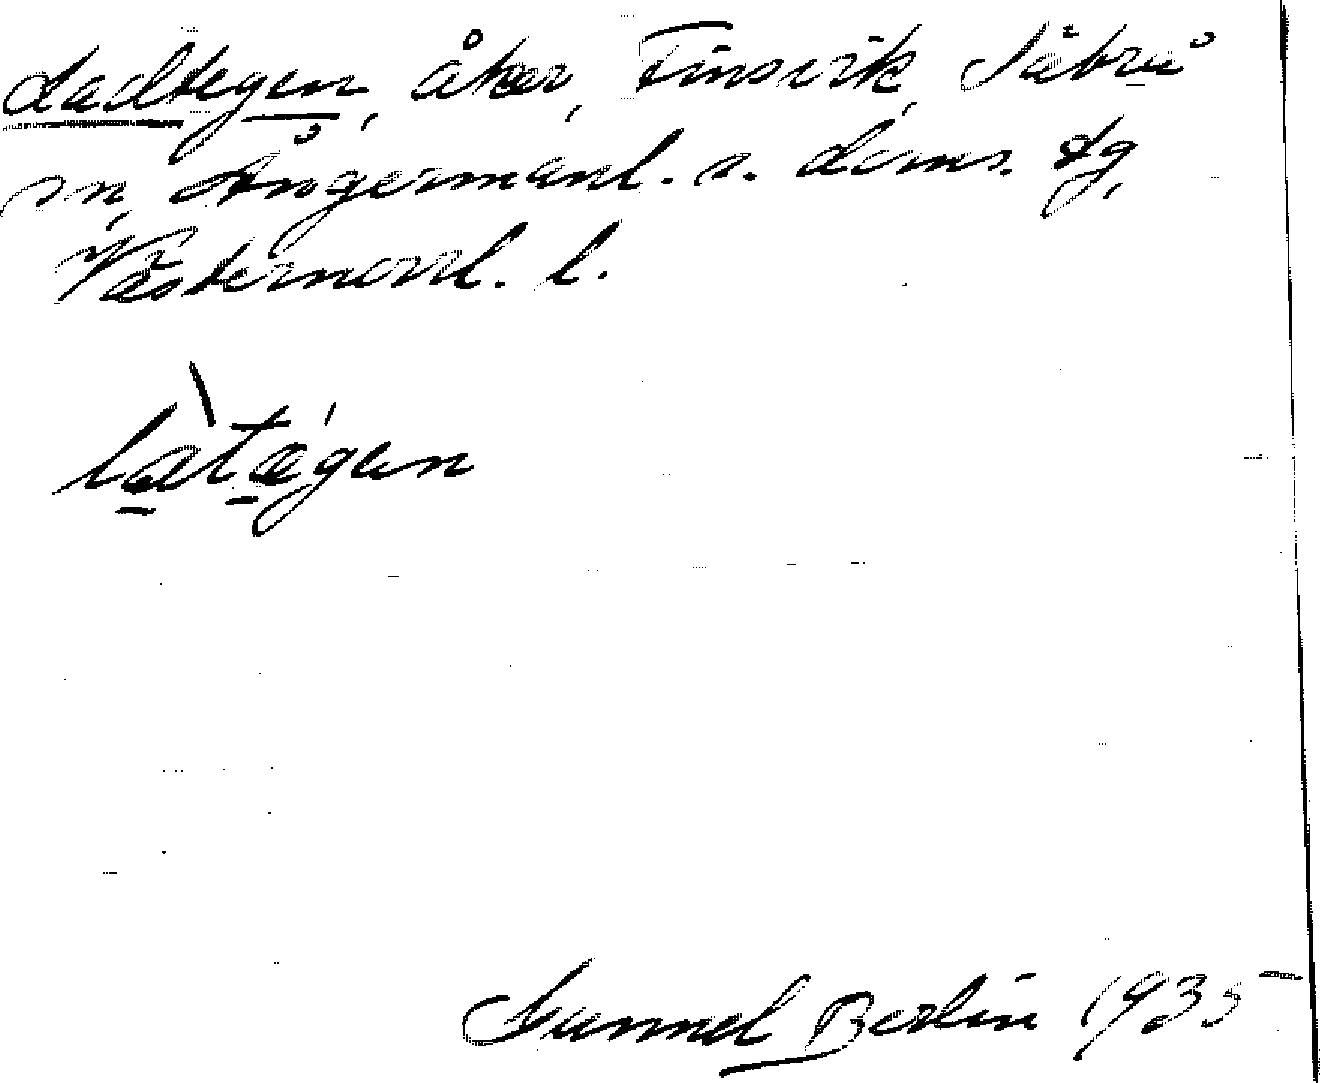 Ladtegen, åker, Finsvik, Säbrå
sn, Ångermanl. s. doms. dg,
Västernorrl. l.
latægen
Gunnel Berlin 1935